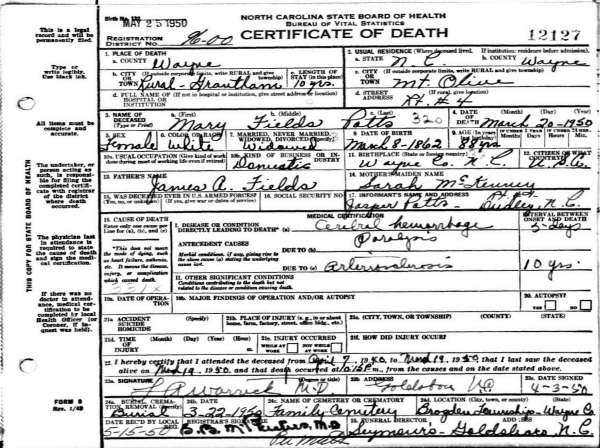 NORTH CAROLINA STATE BOARD OF HEALTH
BUREAU OF VITAL STATISTICS
CERTIFICATE OF DEATH
MAY 25 1950
REGISTRATION DISTRICT NO. 96-00
12127
This is a legal record and will be permanently filed.
Type or write legibly. Use black ink.
All items must be complete and accurate.
The undertaker, or person acting as such, is responsible for filing the completed certificate with registrar of the district where death occurred.
The physician last in attendance is required to state the cause of death and sign the medical certification.
If there was no doctor in attendance, medical certification to be completed by local Health Officer (or Coroner, if inquest was held).
THIS COPY FOR STATE BOARD OF HEALTH
FORM 8
Rev. 1/49
1. PLACE OF DEATH
a. COUNTY Wayne
2. USUAL RESIDENCE (Where deceased lived. If institution: residence before admission).
a. STATE N. C. b. COUNTY Wayne
b. CITY (If outside corporate limits, write RURAL and give township) OR TOWN Rural-Grantham
c. LENGTH OF STAY (in this place) 10 yrs.
c. CITY (If outside corporate limits, write RURAL and give township) OR TOWN Mt Olive
d. FULL NAME OF (If not in hospital or institution, give street address or location) HOSPITAL OR INSTITUTION
d. STREET ADDRESS (If rural, give location) Rt. # 4
3. NAME OF DECEASED (Type or Print) a. (First) Mary b. (Middle) Fields Potts 320
4. DATE OF DEATH (Month) (Day) (Year) March-20-1950
5. SEX Female
6. COLOR OR RACE White
7. MARRIED, NEVER MARRIED, WIDOWED, DIVORCED (Specify) Widowed
8. DATE OF BIRTH March-8-1862
9. AGE 88 yrs
10a. USUAL OCCUPATION (Give kind of work done during most of working life, even if retired)
10b. KIND OF BUSINESS OR INDUSTRY Domestic
11. BIRTHPLACE (State or foreign country) Wayne Co. N.C.
12. CITIZEN OF WHAT COUNTRY?
13. FATHER'S NAME James A. Fields
14. MOTHER'S MAIDEN NAME Sarah McKenney
15. WAS DECEASED EVER IN U.S. ARMED FORCES?
16. SOCIAL SECURITY NO.
17. INFORMANT'S NAME AND ADDRESS Jasper Potts - Dudley, N.C.
18. CAUSE OF DEATH
Enter only one cause per line for (a), (b), and (c)
MEDICAL CERTIFICATION
INTERVAL BETWEEN ONSET AND DEATH
I. DISEASE OR CONDITION DIRECTLY LEADING TO DEATH* (a) Cerebral hemorrhage 5-days
*This does not mean the mode of dying, such as heart failure, asthenia, etc. It means the disease, injury, or complication which caused death.
ANTECEDENT CAUSES
Morbid conditions, if any, giving rise to the above cause (a) stating the underlying cause last.
DUE TO (b) Paralysis
DUE TO (c) Arteriosclerosis 10 yrs.
II. OTHER SIGNIFICANT CONDITIONS
Conditions contributing to the death but not related to the disease or condition causing death.
331X
19a. DATE OF OPERATION
19b. MAJOR FINDINGS OF OPERATION AND/OR AUTOPSY
20. AUTOPSY? YES NO
21a. ACCIDENT SUICIDE HOMICIDE (Specify)
21b. PLACE OF INJURY (e. g., in or about home, farm, factory, street, office bldg., etc.)
21c. (CITY, TOWN, OR TOWNSHIP) (COUNTY) (STATE)
21d. TIME OF INJURY (Month) (Day) (Year) (Hour)
21e. INJURY OCCURRED WHILE AT WORK NOT WHILE AT WORK
21f. HOW DID INJURY OCCUR?
22. I hereby certify that I attended the deceased from April 7, 1940, to Mar 19, 1950, that I last saw the deceased
alive on Mar 19, 1950, and that death occurred at m., from the causes and on the date stated above.
23a. SIGNATURE Warrick M.D. (Degree or title)
23b. ADDRESS Goldsboro NC
23c. DATE SIGNED 4-3-50
24a. BURIAL, CREMATION, REMOVAL (Specify) Burial
24b. DATE 3-22-1950
24c. NAME OF CEMETERY OR CREMATORY Family Cemetery
24d. LOCATION (City, town, or county) (State) Brogden Township-Wayne Co.
5-15-50
REGISTRAR'S SIGNATURE
ADDRESS
Seymours-Goldsboro, N.C.